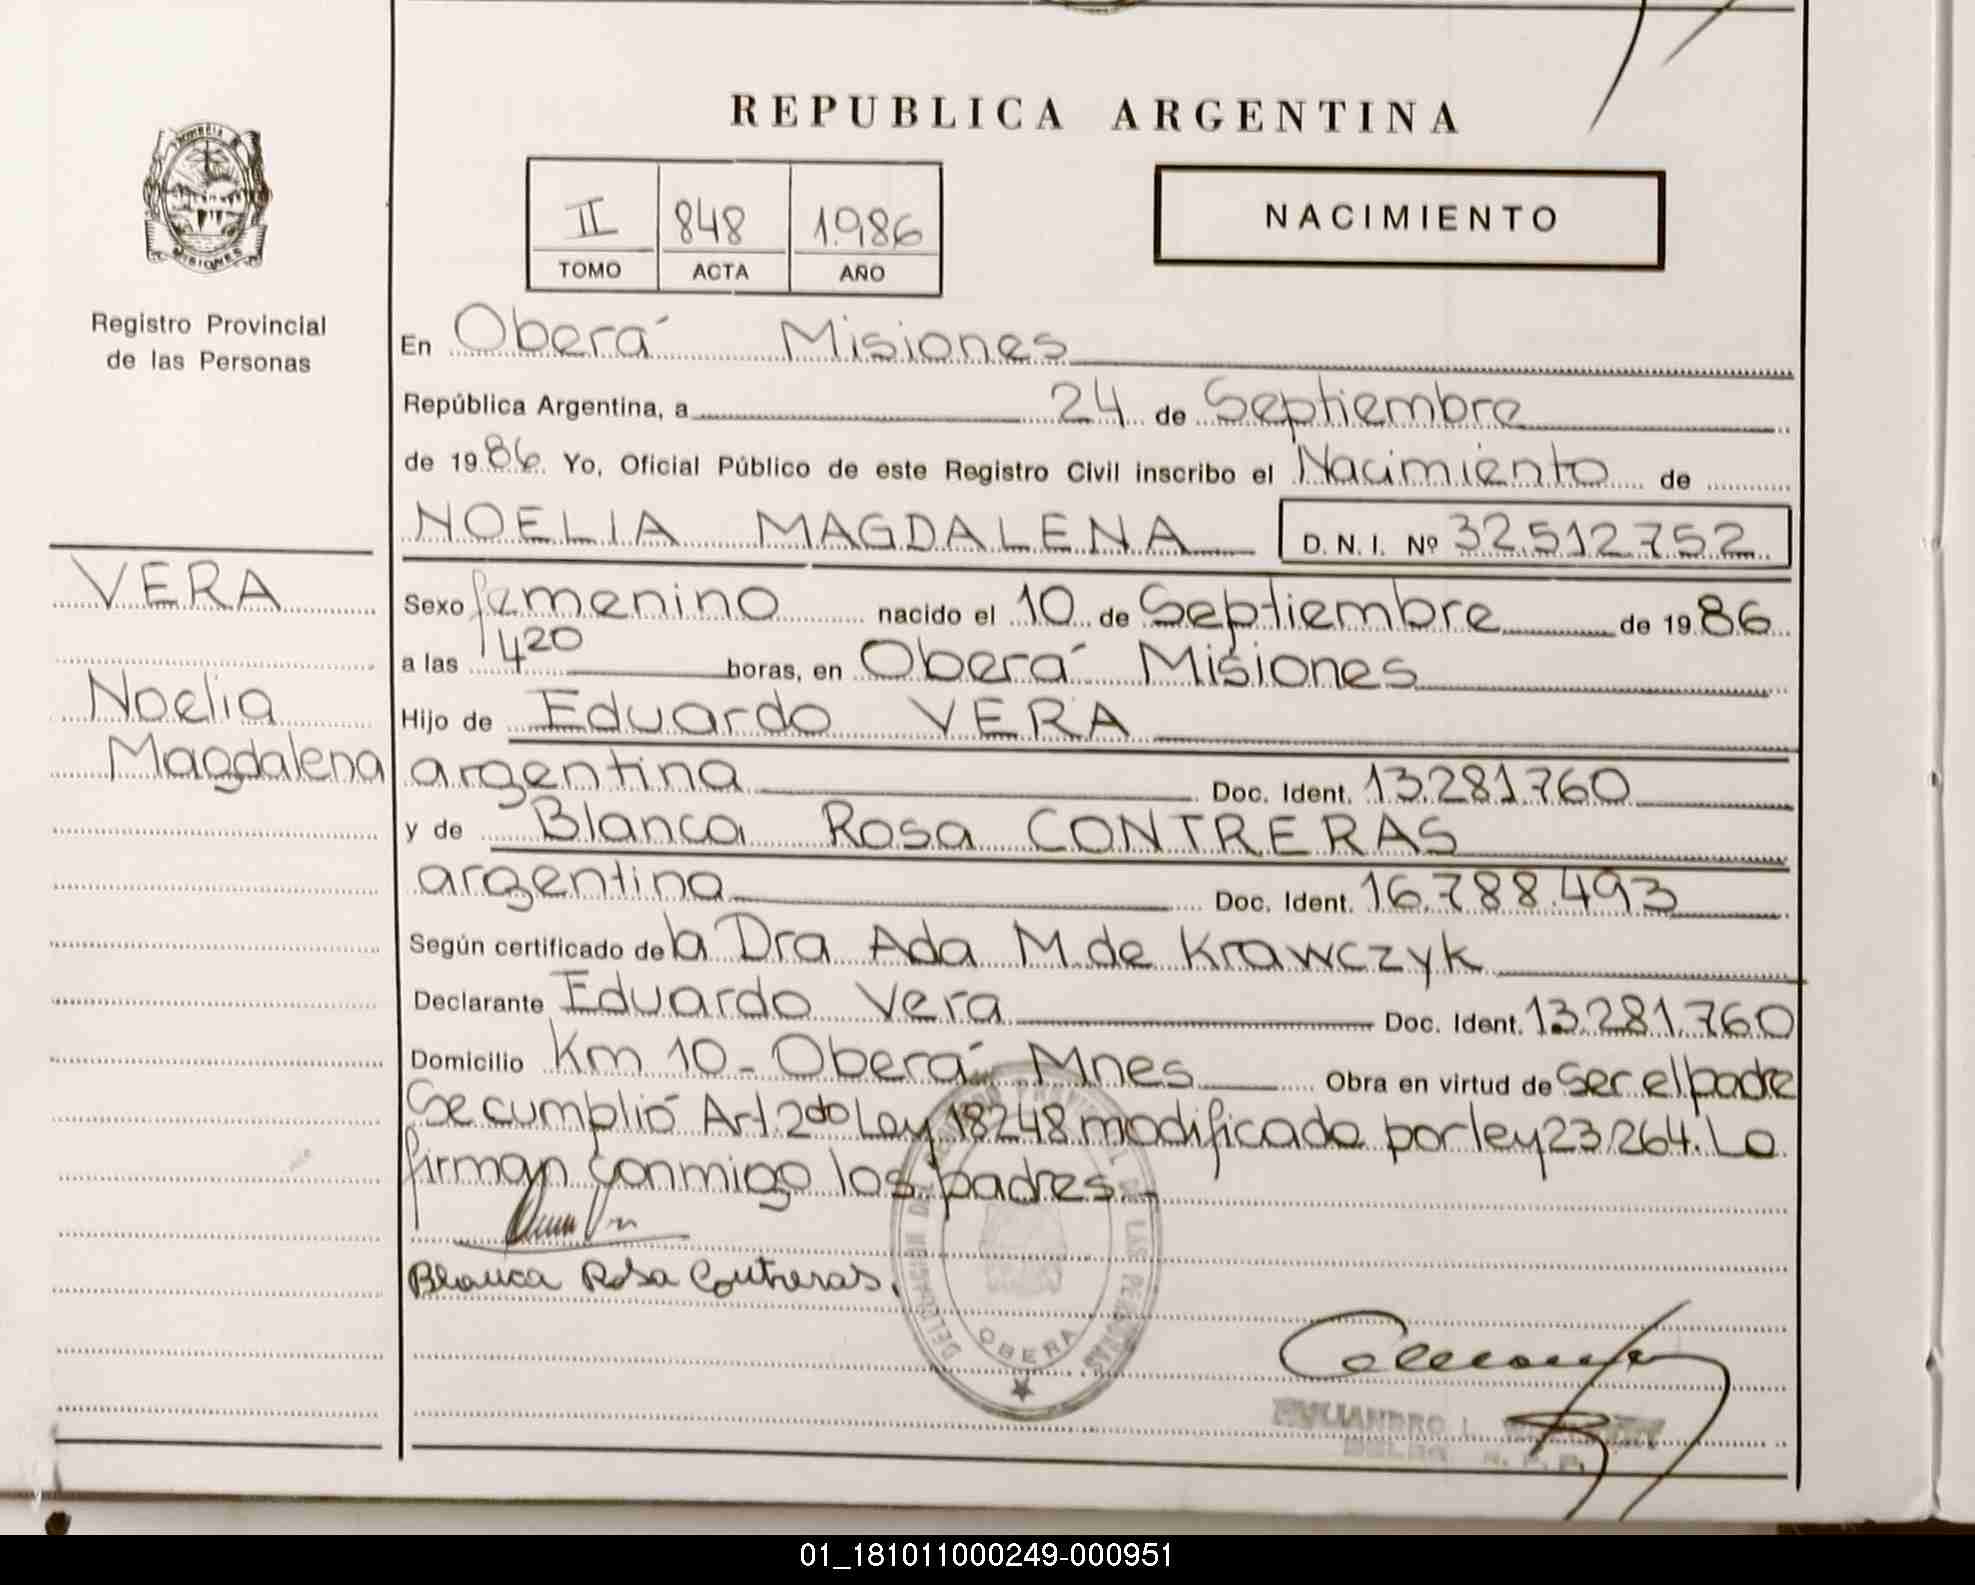 REPUBLICA ARGENTINA
II 848 1.986
TOMO ACTA AÑO
NACIMIENTO
MISIONES
Registro Provincial
de las Personas
VERA
Noelia
Magdalena
En Oberá Misiones
República Argentina, a 24 de Septiembre
de 19 86 Yo, Oficial Público de este Registro Civil inscribo el Nacimiento de
NOELIA MAGDALENA D. N. I. Nº 32.512.752
Sexo femenino nacido el 10 de Septiembre de 19 86
a las 1420 horas, en Oberá Misiones
Hijo de Eduardo VERA
argentina Doc. Ident. 13.281.760
y de Blanca Rosa CONTRERAS
argentina Doc. Ident. 16.788.493
Según certificado de la Dra Ada M. de Krawczyk
Declarante Eduardo Vera Doc. Ident. 13.281.760
Domicilio Km 10 - Oberá Mnes Obra en virtud de Ser el padre
Se cumplió Art. 2do Ley 18248 modificado por ley 23.264. Lo
firman conmigo los padres.-
Blanca Rosa Contreras.
LAS PERSONAS
OBERA
01_181011000249-000951